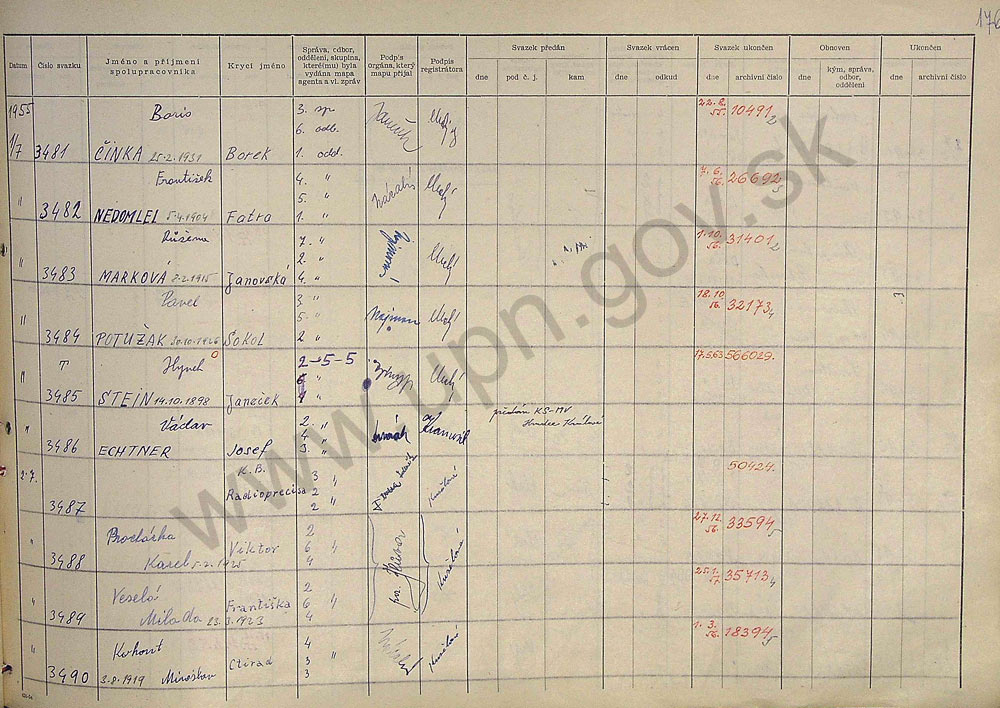 176
Datum
Číslo svazku
Jméno a příjmení spolupracovníka
Krycí jméno
Správa, odbor, oddělení, skupina, které(mu) byla vydána mapa agenta a vl. zpráv
Podpis orgána, který mapu přijal
Podpis registrátora
Svazek předán
Svazek vrácen
Svazek ukončen
Obnoven
Ukončen
dne
pod č. j.
kam
dne
odkud
dne
archivní číslo
dne
kým, správa, odbor, oddělení
dne
archivní číslo
1955
Boris
3. sp.
6. odb.
22. 8. 55.
10491 2
1/7
3481
ČINKA 25.2.1931
Borek
1. odd.
František
4. "
7. 6. 56.
26692 5
5. "
"
3482
NEDOMLEL 5.4.1904
Fatra
1. "
Růžena
7. "
1. 10. 56.
31401 2
2. "
"
3483
MARKOVÁ 2.2.1915
Janovská
4. "
Pavel
3 "
18. 10. 56.
32173 4
5. "
"
3484
POTUŽAK 20.10.1926
SOKOL
2 "
T
Hynek
2-5-5
17.5.63
566029.
"
3485
STEIN 14.10.1898
Janeček
Václav
2. "
4 "
předán KS-MV
"
3486
ECHTNER
Josef
3. "
Hradec Králové
2.7.
K.B.
3
50424.
Radioprecisa
2 "
3487
2 "
Procházka
2
27. 12. 56.
33594 5
"
Viktor
6 "
3488
Karel 5.2.1925
4
Veselá
2
25. 1. 57.
35713 4
"
Františka
6 "
3489
Milada 23.3.1923
4
Kohout
4
1. 3. 56.
18394 5
"
Ctirad
3 "
3490
3.8.1919 Miroslav
3
www.upn.gov.sk